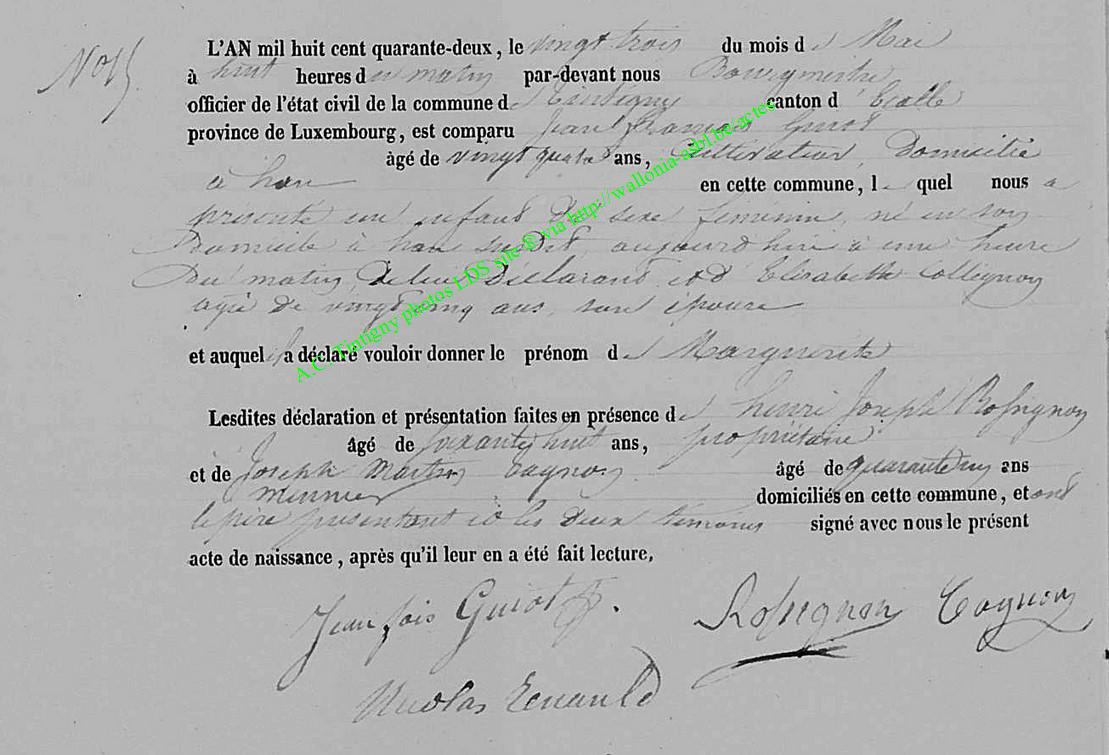 L'AN mil huit cent quarante-deux, le vingt trois du mois de Mai
à huit heures du matin par-devant nous Bourgmestre
officier de l'état civil de la commune de Tintigny canton d' Etalle
province de Luxembourg, est comparu Jean françois Guiot
âgé de vingt quatre ans, Cultivateur Domicilié
à han en cette commune, le quel nous a
présenté un enfant du sexe feminin né en son
Domicile à han susdit, aujourd hui à une heure
Du matin, de lui Déclarant et d' Elisabeth Collignon
agée de vingt cinq ans, son épouse
et auquel il a déclaré vouloir donner le prénom de Marguerite
Lesdites déclaration et présentation faites en présence de henri Joseph Rossignon
âgé de soixante huit ans, propriétaire
et de Joseph Martin Cognon âgé de ans
Meunier domiciliés en cette commune, et ont
le père présentant et les deux témoins signé avec nous le présent
acte de naissance, après qu'il leur en a été fait lecture,
Jean fois Guiot Rossignon Cognon
Nicolas
A.C. Tintigny photos LDS site © via http://wallonia-asbl.be/actes